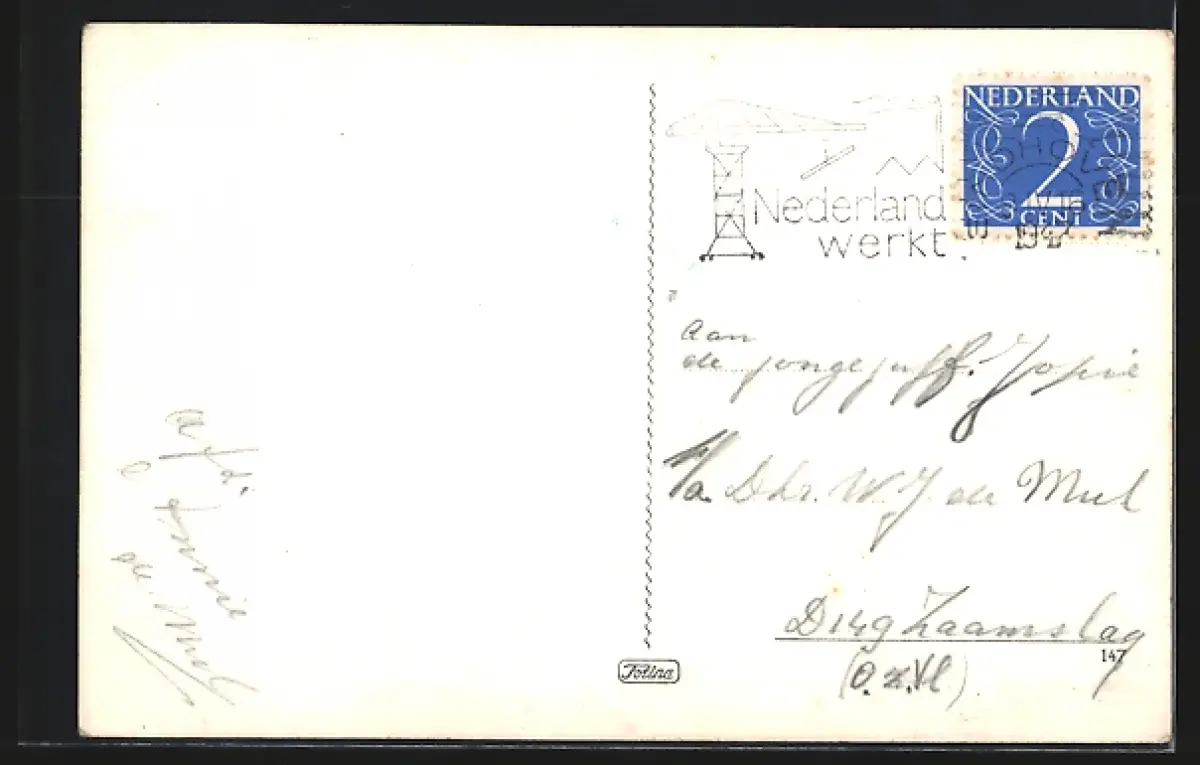 NEDERLAND
2
CENT
Nederland
werkt
1947
Aan
de jongejuff. Josie
p/a Dhr. W. J. de Mul
D149 Zaamslag
(O.z.Vl)
147
afz.
Jannie
de Mul